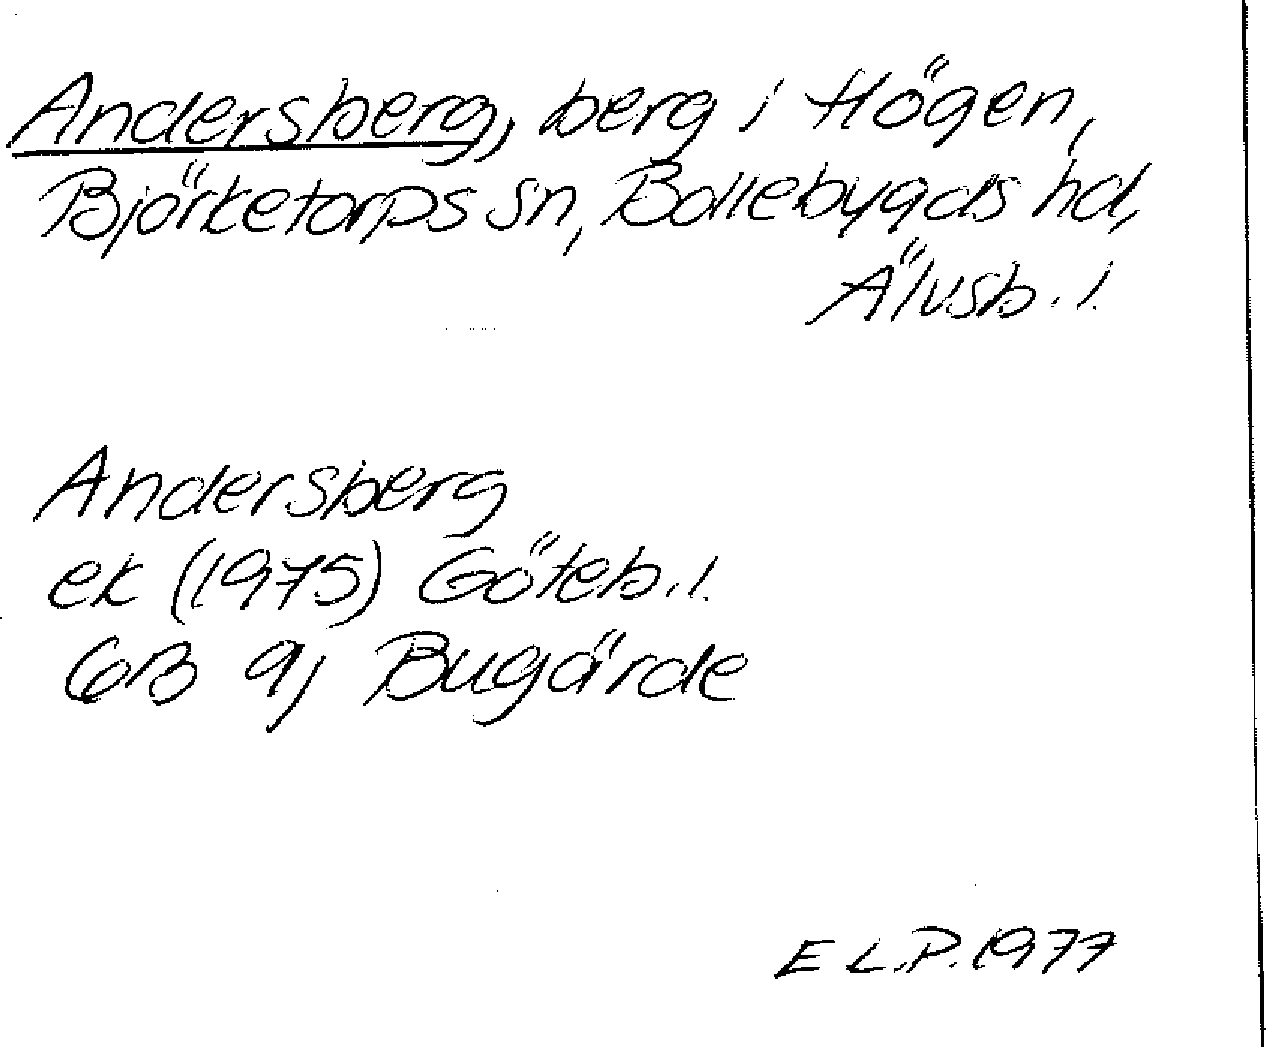 Andersberg, berg i Högen,
Björketorps sn, Bollebygds hd,
Älvsb. l.
Andersberg
ek (1975) Göteb. l.
6B 9j Bugärde
E L.P. 1977